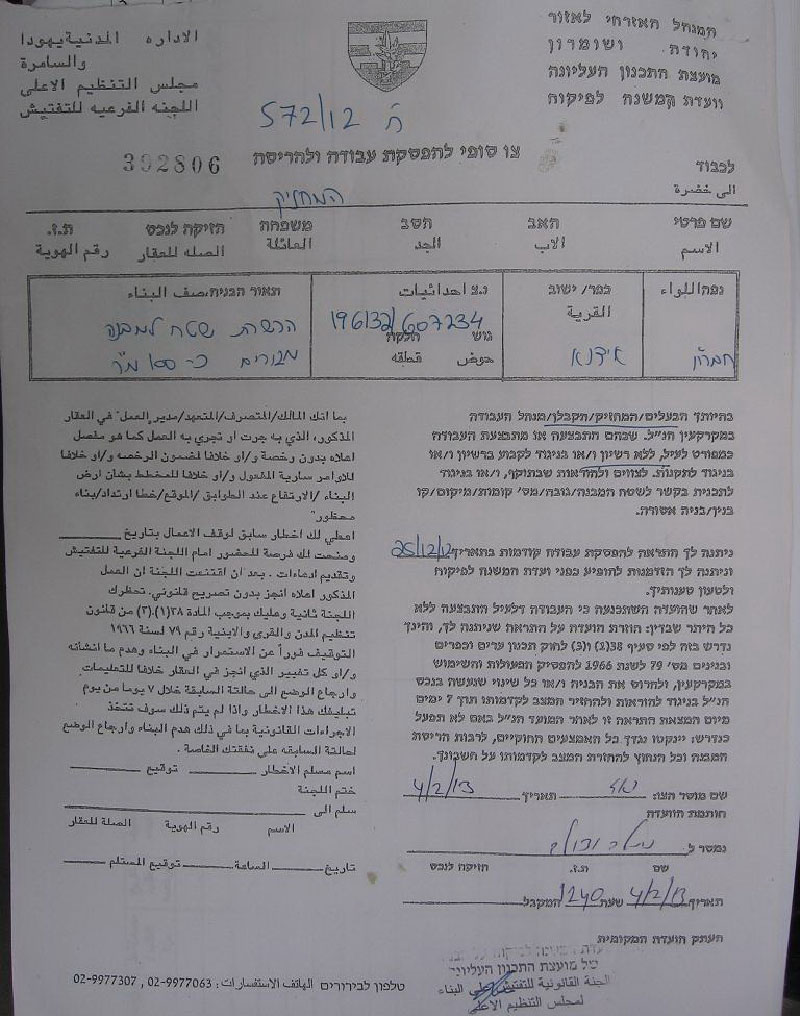 המנהל האזרחי לאזור
יהודה ושומרון
מועצת התכנון העליונה
וועדת המשנה לפיקוח
الاداره المدنية يهودا
والسامرة
مجلس التنظيم الاعلى
اللجنه الفرعيه للتفتيش
ה 572/12
צו סופי להפסקת עבודה ולהריסה
302806
לכבוד
الى حضرة
המחזיק
שם פרטי האב הסב משפחה הזיקה לנכס ת.ז.
الاسم الاب الجد العائلة الصله للعقار رقم الهوية
נפה اللواء כפר/ ישוב נ.צ احداثيات תאור הבניה وصف البناء
القرية
196132/607234
גוש חלקה
حوض قطعة
חברון
אידנא
הכשרת שטח למבנה
מגורים כ- 100 מ"ר
בהיותך הבעלים/המחזיק/הקבלן/מנהל העבודה
במקרקעין הנ"ל. שבהם התבצעה או מתבצעת העבודה
כמפורט לעיל, ללא רשיון ו/או בניגוד לקבוע ברשיון ו/או
בניגוד לתקנות. לצווים ולהוראות שבתוקף, ו/או בניגוד
לתכנית בקשר לשטח המבנה/גובה/מס' קומות/מיקום/קו
בנין/בניה אסורה.
ניתנה לך התראה להפסקת עבודה קודמות בתאריך 25/12/12
וניתנה לך הזדמנות להופיע בפני ועדת המשנה לפיקוח
ולטעון טענותיך.
לאחר שהועדה השתכנעה כי העבודה דלעיל התבצעה ללא
כל היתר שבדין: חוזרת הועדה על התראה שניתנה לך, והינך
נדרש בזה לפי סעיף 38(1) ו(3) לחוק תכנון ערים וכפרים
ובנינים מס' 79 לשנת 1966 להפסיק הפעולות והשימוש
במקרקעין, ולהרוס את הבניה ו/או כל שינוי שנעשה בנכס
הנ"ל בניגוד להוראות ולהחזיר המצב לקדמותו תוך 7 ימים
מיום המצאת התראה זו לאחר המועד הנ"ל באם לא תפעל
כנדרש: יינקטו נגדך כל האמצעים החוקיים, לרבות הריסת
המבנה וכל הנחוץ להחזרת המצב לקדמותו על חשבונך.
שם מוסר הצו: תאריך 4/2/13
חותמת הוועדה
נמסר ל
שם ת.ז. הזיקה לנכס
תאריך 4/2/13 שעה 1240 המקבל
העתק הועדה המקומית
بما انك المالك/المتصرف/المتعهد/مدير العمل" في العقار
المذكور، الذي به جرت أو تجري به العمل كما هو مفصل
اعلاه بدون رخصة و/او خلافا لمضمون الرخصه و/او خلافا
للاوامر سارية المفعول و/او خلافا للمخطط بشأن ارض
البناء /الارتفاع عند الطوابق /الموقع/خط ارتداد/بناء
محظور"
اعطي لك اخطار سابق لوقف الاعمال بتاريخ
ومنحت لك فرصة للحضور امام اللجنة الفرعية للتفتيش
وتقديم ادعاءات . بعد ان اقتنعت اللجنة ان العمل
المذكور اعلاه انجز بدون تصريح قانوني. تحظرك
اللجنة ثانية وعليك بموجب المادة ٣٨(١).(٣) من قانون
تنظيم المدن والقرى والابنية رقم ٧٩ لسنة ١٩٦٦
التوقيف فوراً عن الاستمرار في البناء وهدم ما انشأته
و/او كل تغيير الذي انجز في العقار خلافا للتعليمات
وارجاع الوضع الى حالته السابقة خلال ٧ يوما من يوم
تبليغك هذا الاخطار واذا لم يتم ذلك سوف تتخذ
الاجراءات القانونية بما في ذلك هدم البناء وارجاع الوضع
لحالته السابقه على نفقتك الخاصة .
اسم مسلم الاخطار توقيع
ختم اللجنة
سلم الى
الاسم رقم الهوية الصلة للعقار
تاريخ الساعة توقيع المستلم
של מועצת התכנון העליונה
على البناء
لمجلس التنظيم الاعلى
טלפון לבירורים الهاتف الاستفسارات : 02-9977063 , 02-9977307